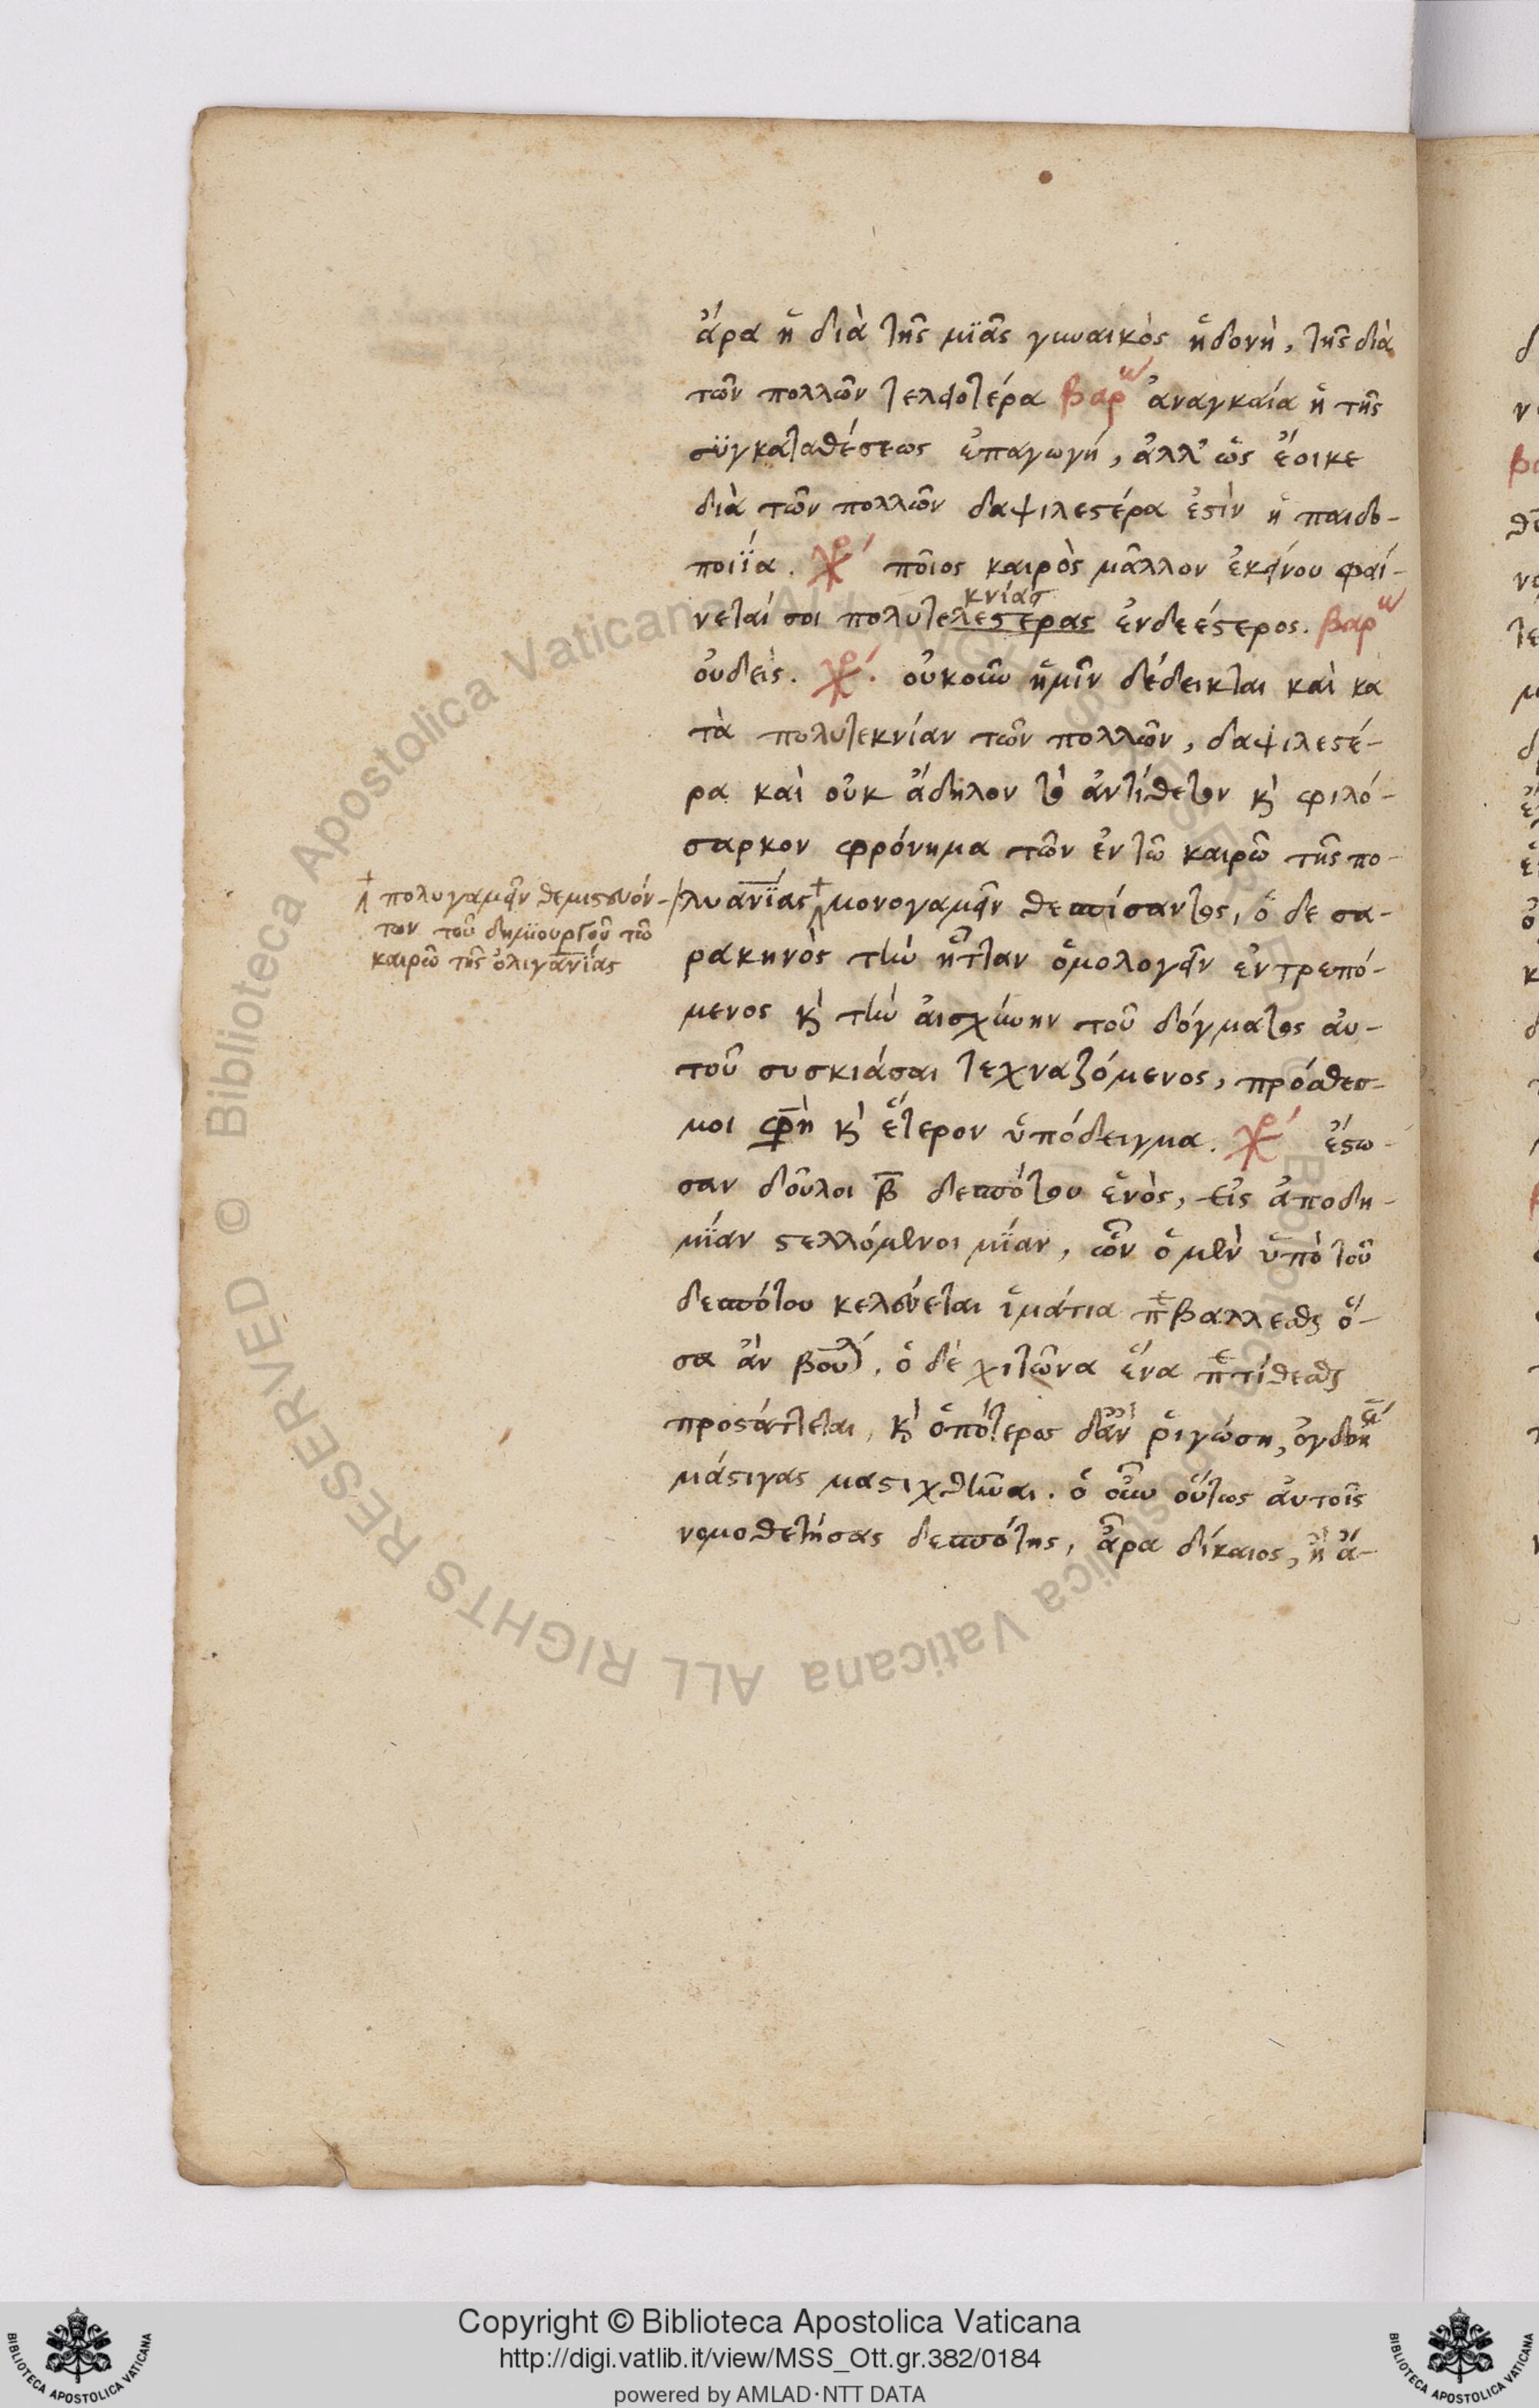 ἄρα ἡ διὰ τῆς μιᾶς γυναικὸς ἡδονὴ, τῆς διὰ
τῶν πολλῶν τελειοτέρα βαρ ἀναγκαία ἡ τῆς
συγκαταθέσεως ἐπαγωγή, ἀλλ' ὡς ἔοικε
διὰ τῶν πολλῶν δαψιλεστέρα ἐστὶν ἡ παιδο-
ποιΐα. χρ ποῖος καιρὸς μᾶλλον ἐκείνου φαί-
κνίας
νεταί σοι πολυτελεστερας ἐνδεέστερος. βαρ
οὐδείς. χρ. οὐκοῦν ἡμῖν δέδεικται καὶ κα
τὰ πολυτεκνίαν τῶν πολλῶν, δαψιλεστέ-
ρα καὶ οὐκ ἄδηλον τὸ ἀντίθετον κὶ φιλό-
σαρκον φρόνημα τῶν ἐν τῶ καιρῶ τῆς πο-
λυανΐας + μονογαμεῖν θεσπίσαντος, ὁ δε σα-
+ πολυγαμεῖν θεμιστευόν-
των τοῦ δημιουργοῦ τῶ
καιρῶ τῆς ὀλιγανίας
ρακηνὸς τὴν ἧτταν ὁμολογεῖν ἐντρεπό-
μενος κὶ τὴν αἰσχύνην τοῦ δόγματος αὐ-
τοῦ συσκιάσαι τεχναζόμενος, πρόσθεσ-
μοι φησὶ κὶ ἕτερον ὑπόδειγμα. χρ ἔστω-
σαν δοῦλοι β δεσπότου ἑνὸς, εἰς ἀποδη-
μΐαν στελλόμενοι μΐαν, ὧν ὁ μὲν ὑπὸ τοῦ
δεσπότου κελεύεται ἱμάτια περιβαλλεσθαι ὅ-
σα ἂν βουλ. ὁ δὲ χιτῶνα ἕνα περιτίθεσθαι
προστάττεται, κὶ ὁπότερος δἂν ῥιγώση,
μάστιγας μαστιχθῆναι. ὁ οὖν οὕτως αὐτοῖς
νομοθετήσας δεσπότης, ἆρα δίκαιος, ἢ ἄ-
Copyright © Biblioteca Apostolica Vaticana
http://digi.vatlib.it/view/MSS_Ott.gr.382/0184
powered by AMLAD·NTT DATA
BIBLIOTECA APOSTOLICA VATICANA
BIBLIOTECA APOSTOLICA VATICANA
© Biblioteca Apostolica Vaticana ALL RIGHTS RESERVED